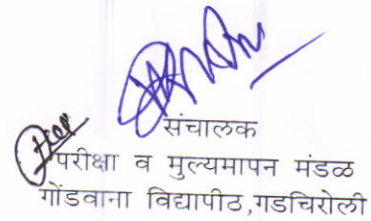 संचालक
परीक्षा व मुल्यमापन मंडळ
गोंडवाना विद्यापीठ,गडचिरोली